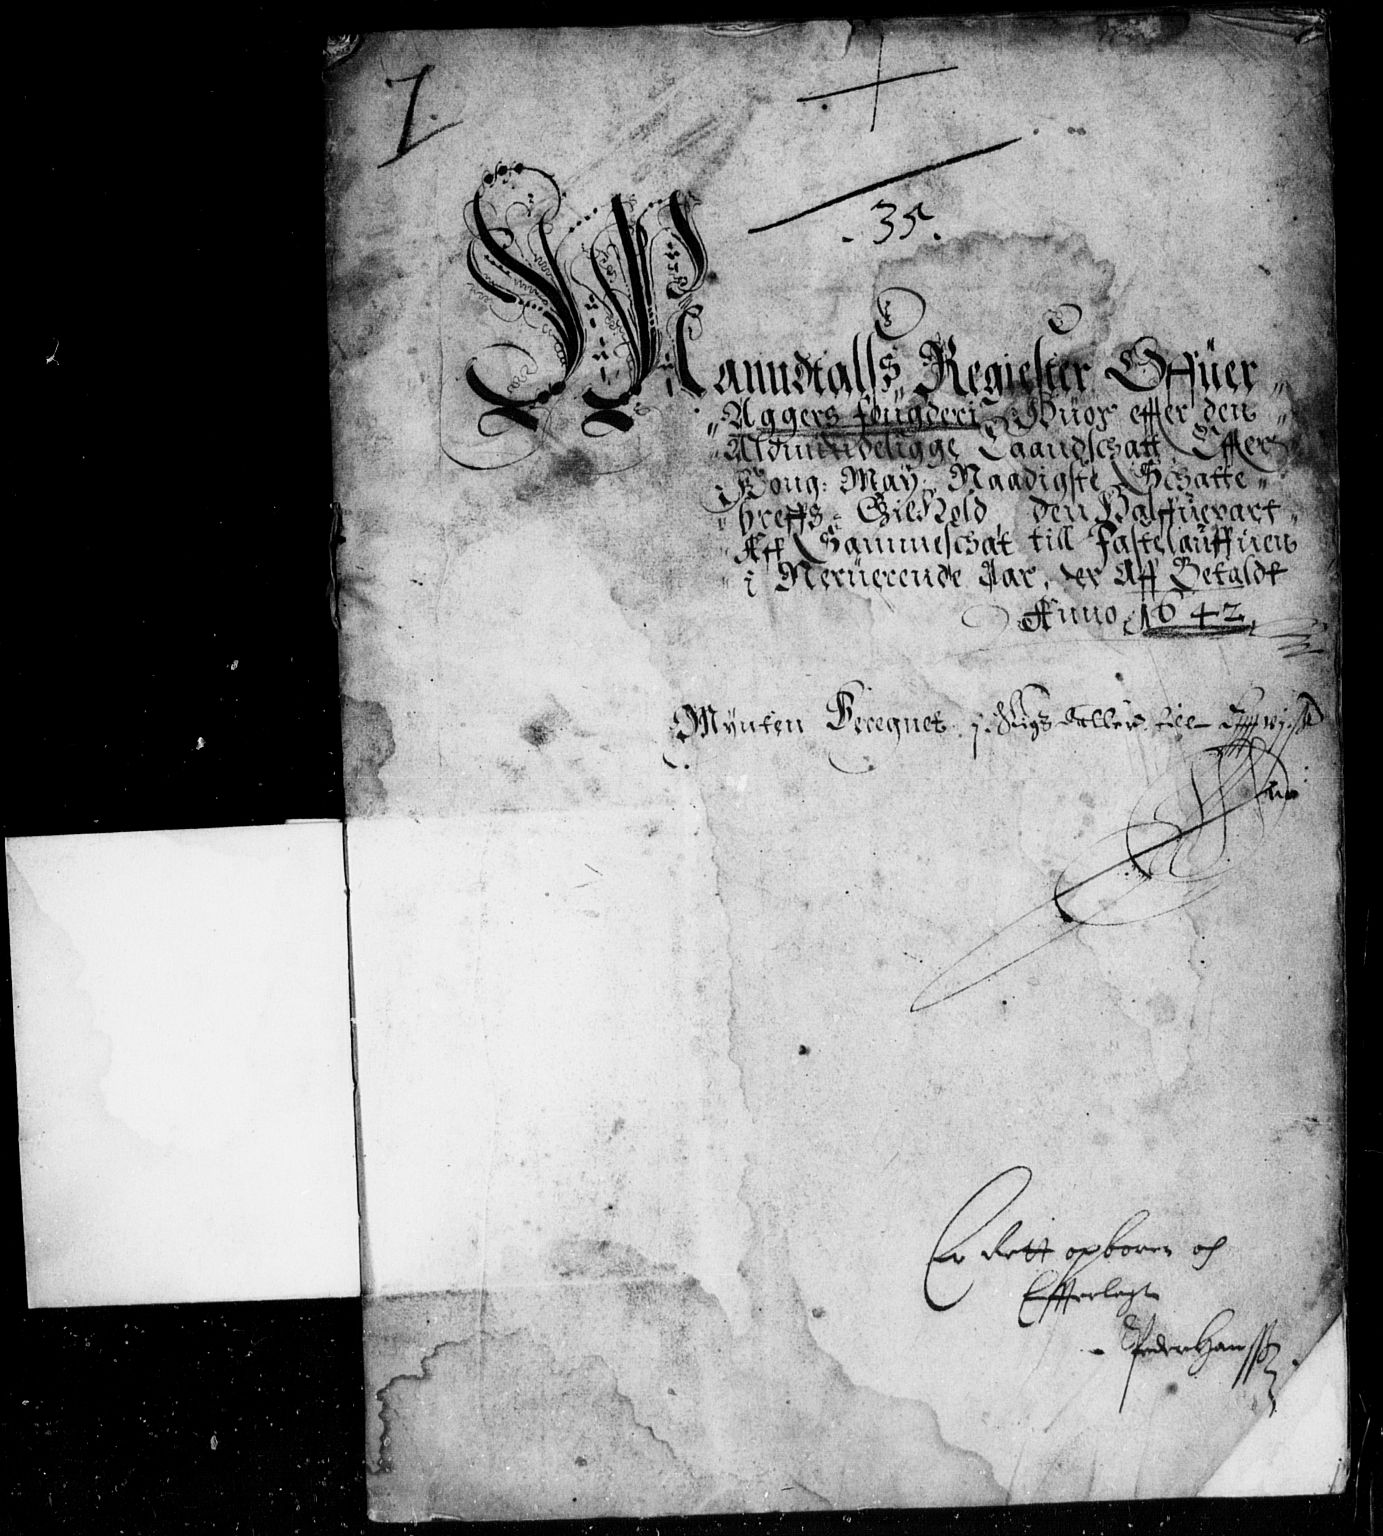 7.
35.
Manndtalls Regiester Offuer
Aggers fougderi Huor effter den
Aldmindeligge Laandschatt Effter
Kong: May: Naadigste Schatte
breffs Gilhold, den Halffuepart
Aff Samme schat till Fastelauffuen
i Neruerende Aar, der Aff Betaldt
Anno 1642
Mÿnten Beregnet j. Rigs daller till
Er Rett opboren och
Efftterlagt
Peder Hanss